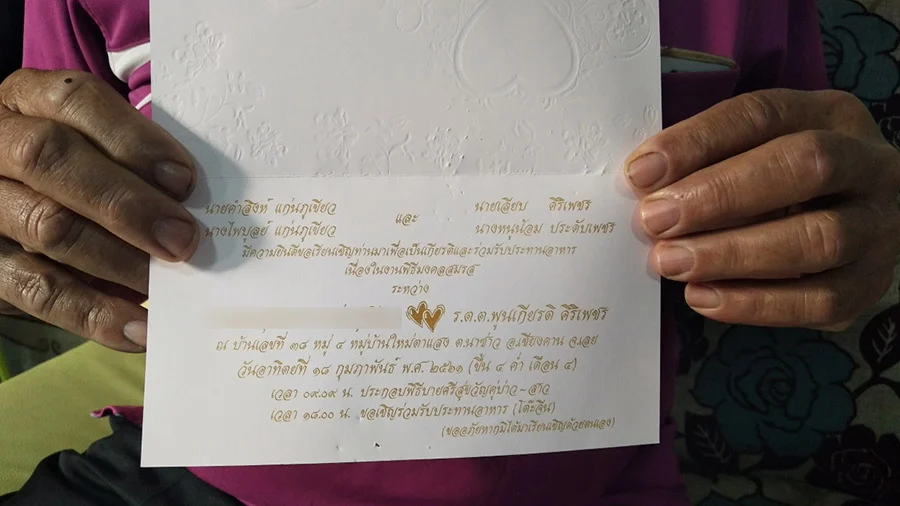 นายคำสิงห์ แก่นภูเขียว และ นายเลียบ ศิริเพชร
นางไพบูลย์ แก่นภูเขียว นางหนูน้อม ประดับเพชร
มีความยินดีขอเรียนเชิญท่านมาเพื่อเป็นเกียรติและร่วมรับประทานอาหาร
เนื่องในงานพิธีมงคลสมรส
ระหว่าง
ร.ต.ต.พูนเกียรติ ศิริเพชร
ณ บ้านเลขที่ ๓๘ หมู่ ๔ หมู่บ้านใหม่ตาแสง ต.นาซ่าว อ.เชียงคาน จ.เลย
วันอาทิตย์ที่ ๑๘ กุมภาพันธ์ พ.ศ.๒๕๖๑ (ขึ้น ๔ ค่ำ เดือน ๔)
เวลา ๐๙.๐๙ น. ประกอบพิธีบายศรีสู่ขวัญคู่บ่าว~สาว
เวลา ๑๘.๐๐ น. ขอเชิญร่วมรับประทานอาหาร (โต๊ะจีน)
(ขออภัยหากมิได้มาเรียนเชิญด้วยตนเอง)